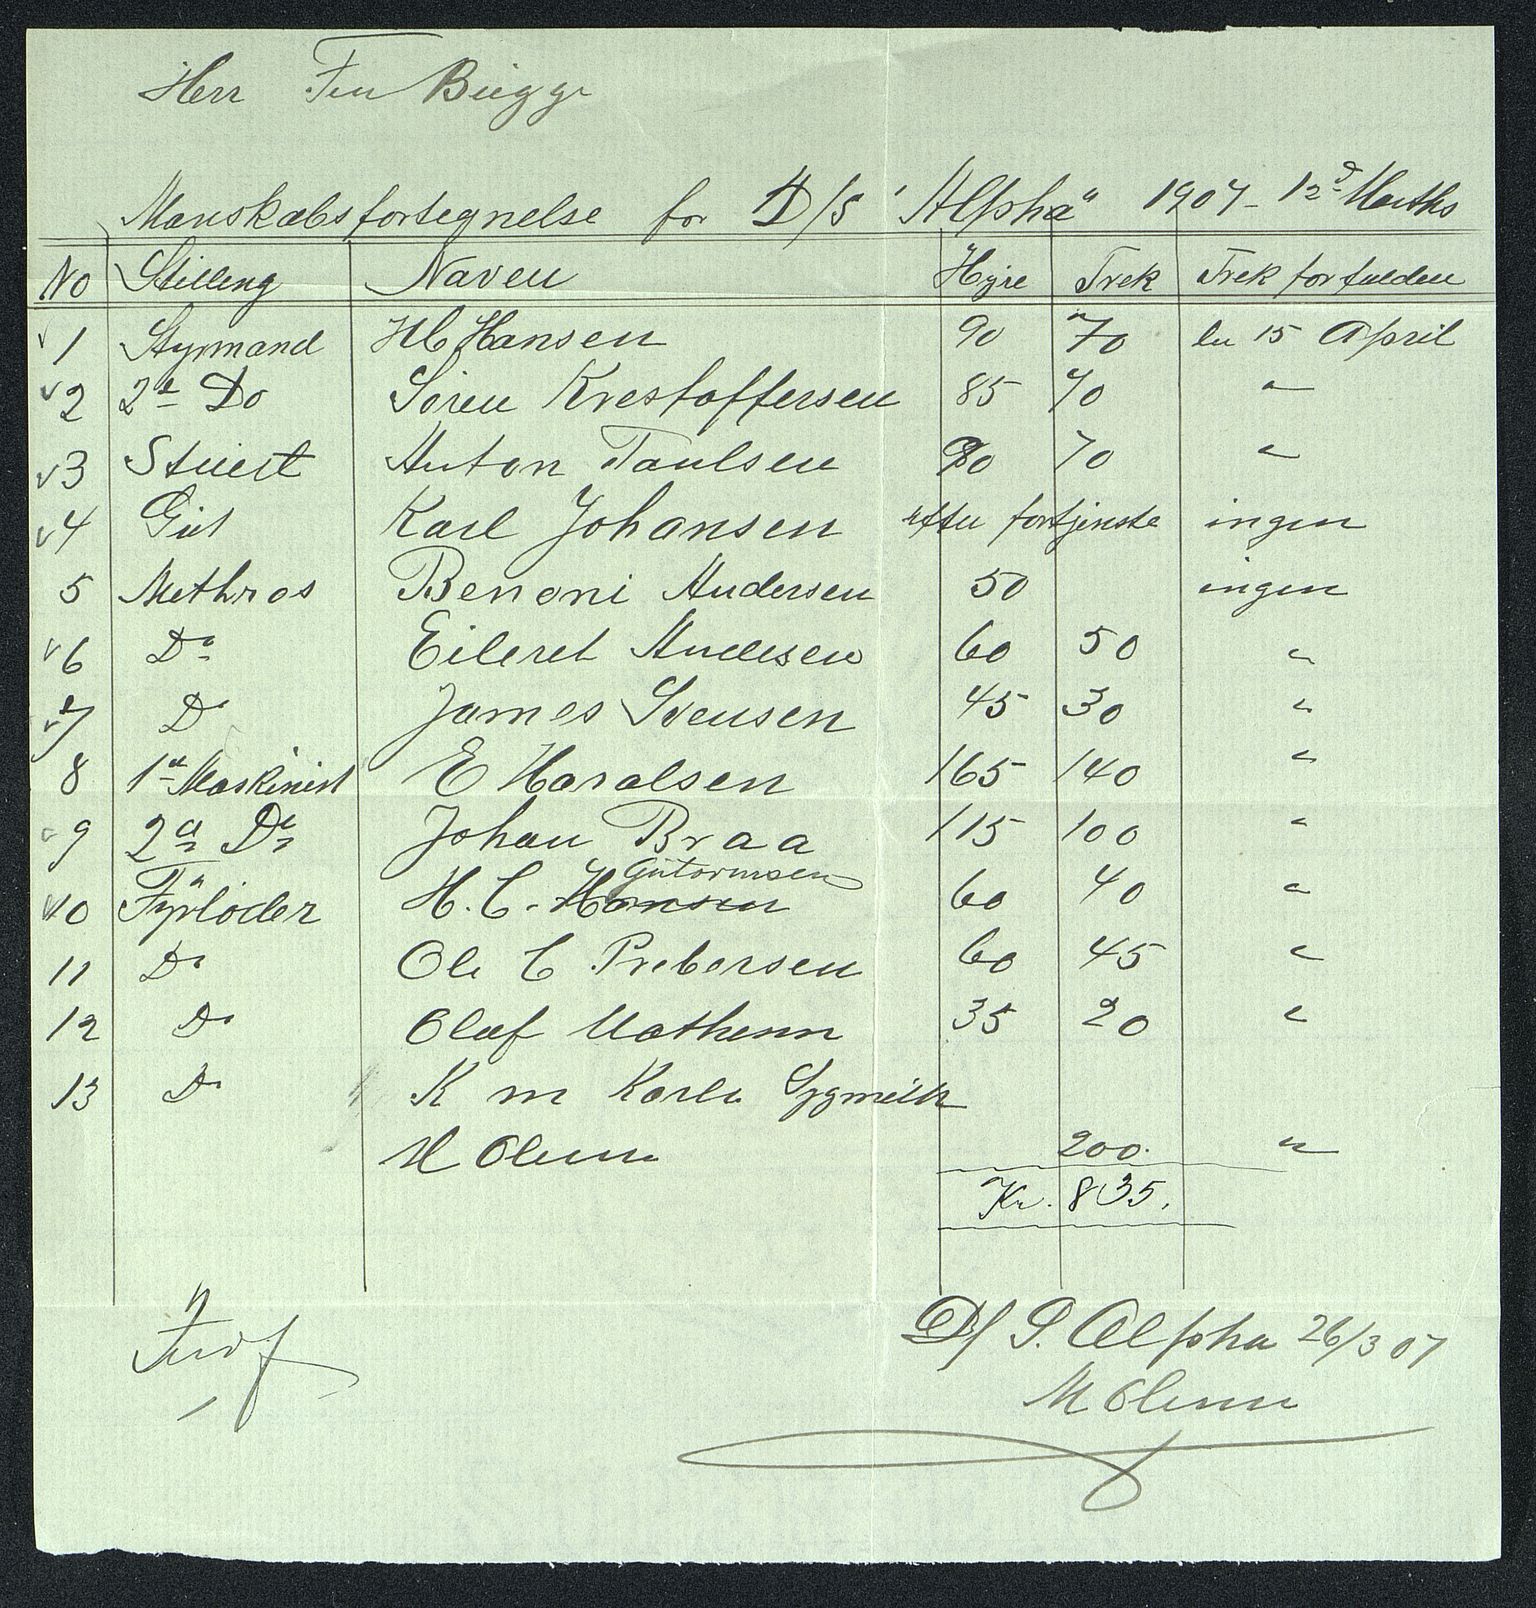 Herr Fin Bugge
Manskabsfortegnelse for D/S "Alpha" 1907 - 12d Marths
No Stilling Naven Hyre Trek Trek forfalden
1 Styrmand H C Hansen 90 70 den 15 April
2 2den Do Sören Krestoffersen 85 70 "
3 Stuert Anton Paulsen 90 70 "
4 Gut Karl Johansen efter fortjenste ingen
5 Mathros Benoni Andersen 50 ingen
6 Do Eileret Andesen 60 50 "
7 Do James Svensen 45 30 "
8 1ste Maskinist E Haralsen 165 140 "
9 2den Do Johan Braa 115 100 "
Gutormsen
10 Fyrböder H. C. Hansen 60 40 "
11 Do Ole C Prebersen 60 45 "
12 Do Olaf Mathesen 35 20 "
13 Do K m Karle
M Olsen 200. "
Kr. 835.
D/S. Alpha 26/3 07
M Olsen